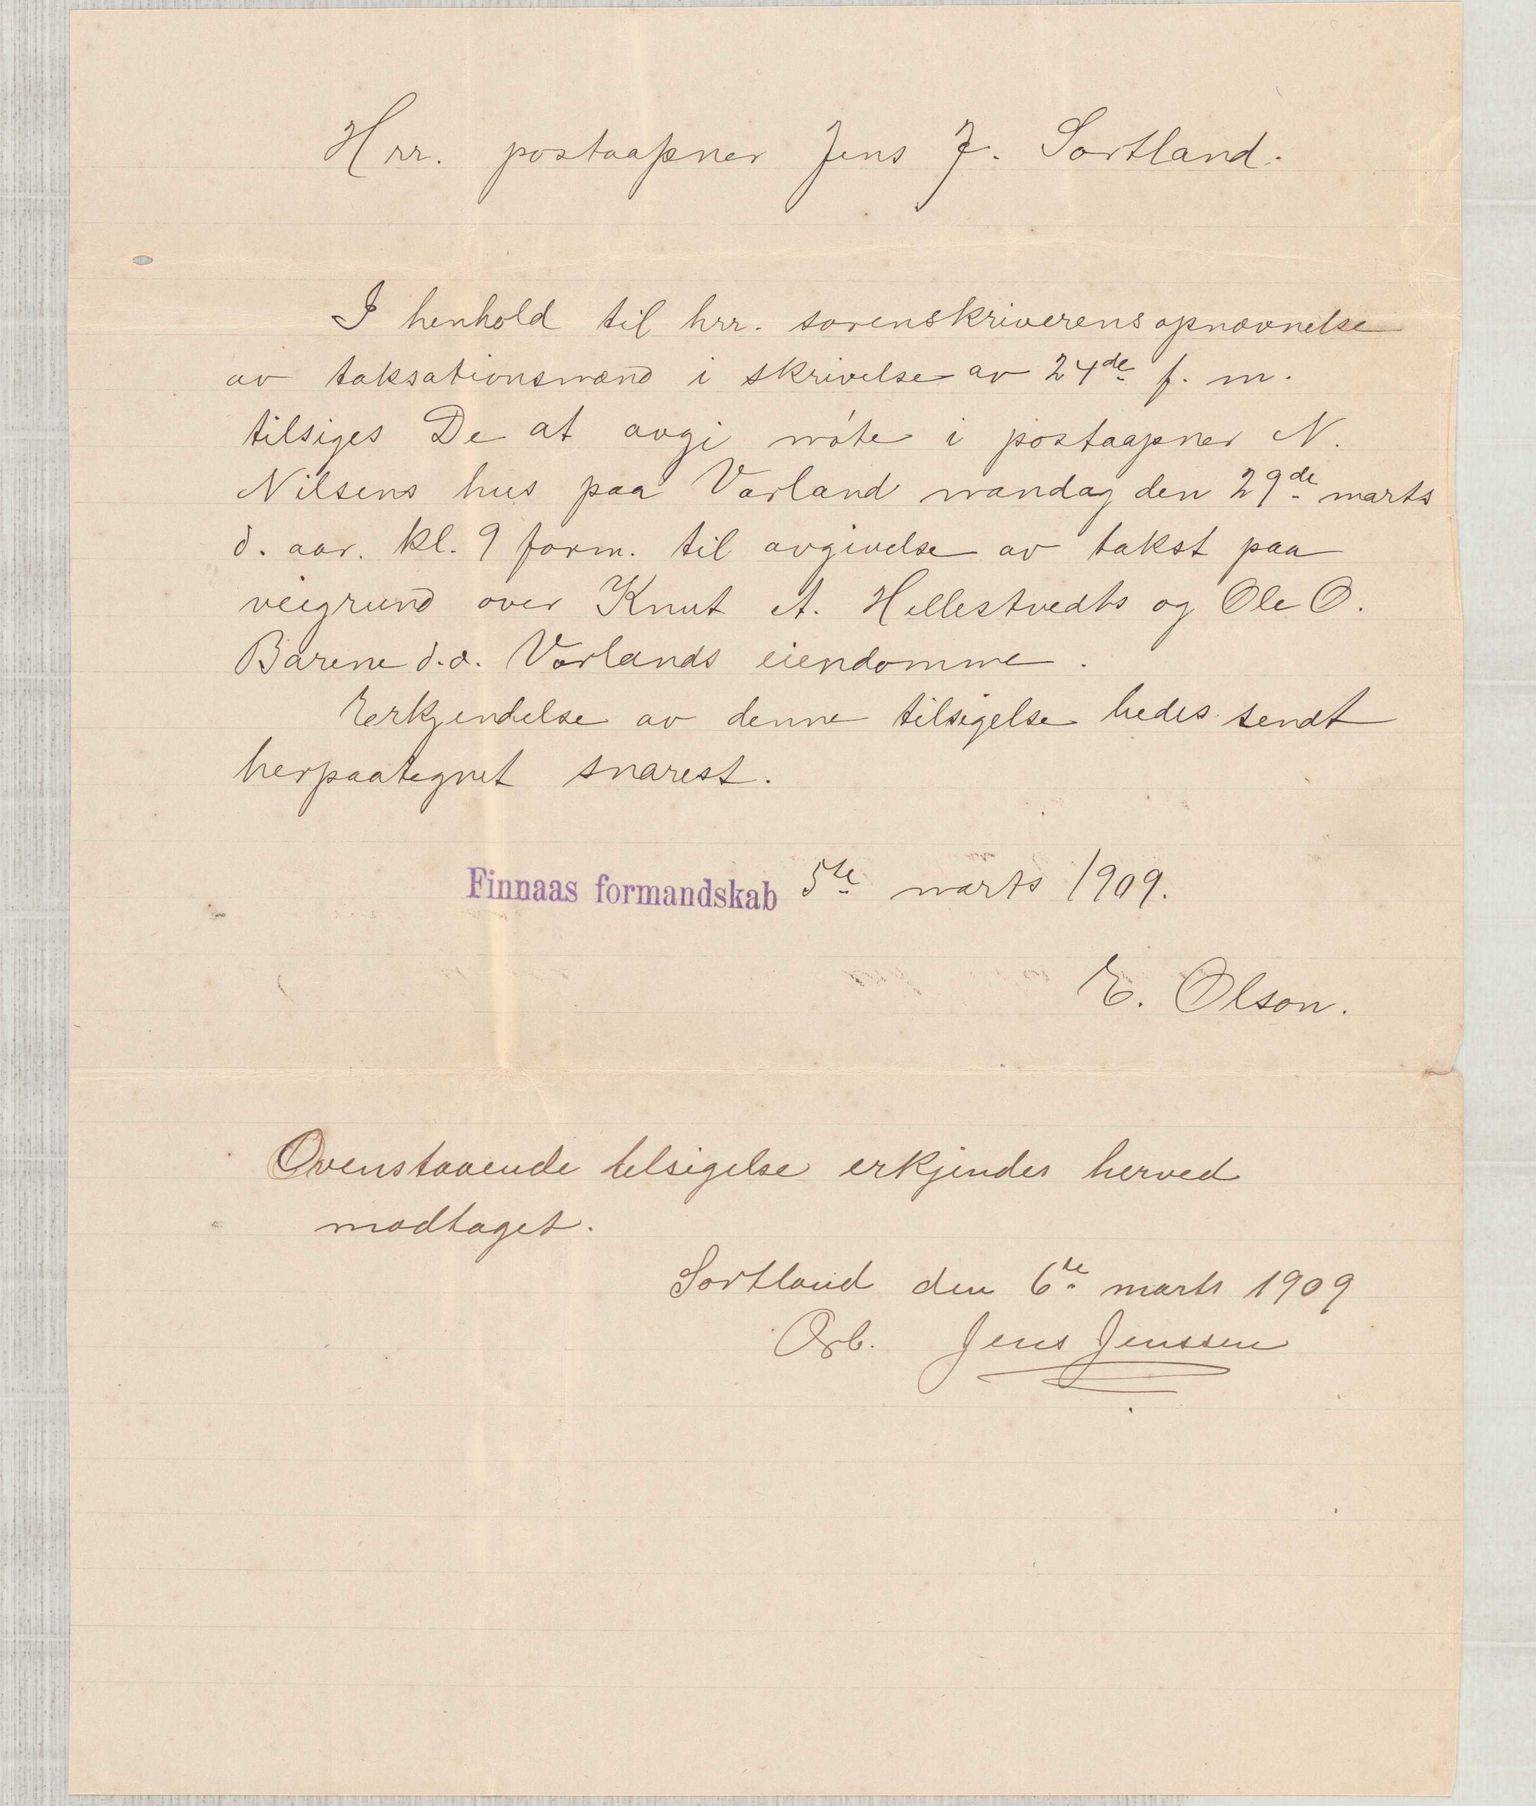 Hrr. postaapner Jens J. Sortland.
I henhold til hrr. sorenskriverens opnævnelse
av taksationsmænd i skrivelse av 24de f. m.
tilsiges De at avgi møte i postaapner N.
Nilsens hus paa Vorland mandag den 29de marts
d. aar. kl. 9 form. til avgivelse av takst paa
veigrund over Knut A. Hellestvedts og Ole O.
Barene d.o. Vorlands eiendomme.
Erkjendelse av denne tilsigelse bedes sendt
herpaategnet snarest.
Finnaas formandskab 5te marts 1909.
E. Olson.
Ovenstaaende tilsigelse erkjendes herved
modtaget.
Sortland den 6te marts 1909
Ørb. Jens Jenssen